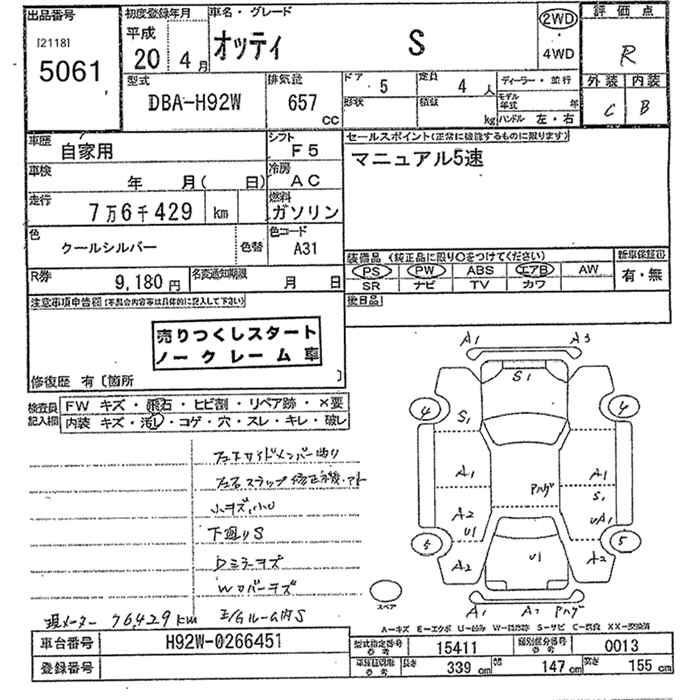 出品番号
[2118]
5061
初度登録年月
平成
20 4月
車名・グレード
オッティ S
2WD
4WD
評価点
R
外装 内装
C B
型式
DBA-H92W
排気量
657
cc
ドア 5
定員 4 人
形状
積載 kg
ディーラー・並行
モデル年式 年
ハンドル 左・右
車歴
自家用
シフト
F5
セールスポイント(正常に機能するものに限ります)
マニュアル5速
車検
年 月( 日)
冷房
AC
走行
7万6千429 km
燃料
ガソリン
色
クールシルバー
色替
色コード
A31
装備品(純正品に限り○をつけてください)
PS PW ABS エアB AW
SR ナビ TV カワ
新車保証書
有・無
R券
9,180円
名変通知期限
月 日
後日品
注意事項申告欄(不具合内容等は具体的に記入して下さい)
売りつくしスタート
ノークレーム車
修復歴 有〔箇所 〕
検査員記入欄
FW キズ・飛石・ヒビ割・リペア跡・×要
内装 キズ・汚し・コゲ・穴・スレ・キレ・破レ
小キズ、小U
下廻りS
Dミラーキズ
Wカバーキズ
E/GルームS
現メーター 76,429km
A1 A3
S1
4 4
S1
A1 A1
Pハゲ
S1
A2 UA1
U1
5 5
U1
A2 A2
スペア
A1 A2 Pハゲ
A-キズ E-エクボ U-凹み W-補修跡 S-サビ C-腐食 XX-交換済
車台番号
H92W-0266451
登録番号
型式指定番号
参考
15411
類別区分番号
参考
0013
車庫証明取
参考
長さ 339 cm
幅 147 cm
高さ 155 cm